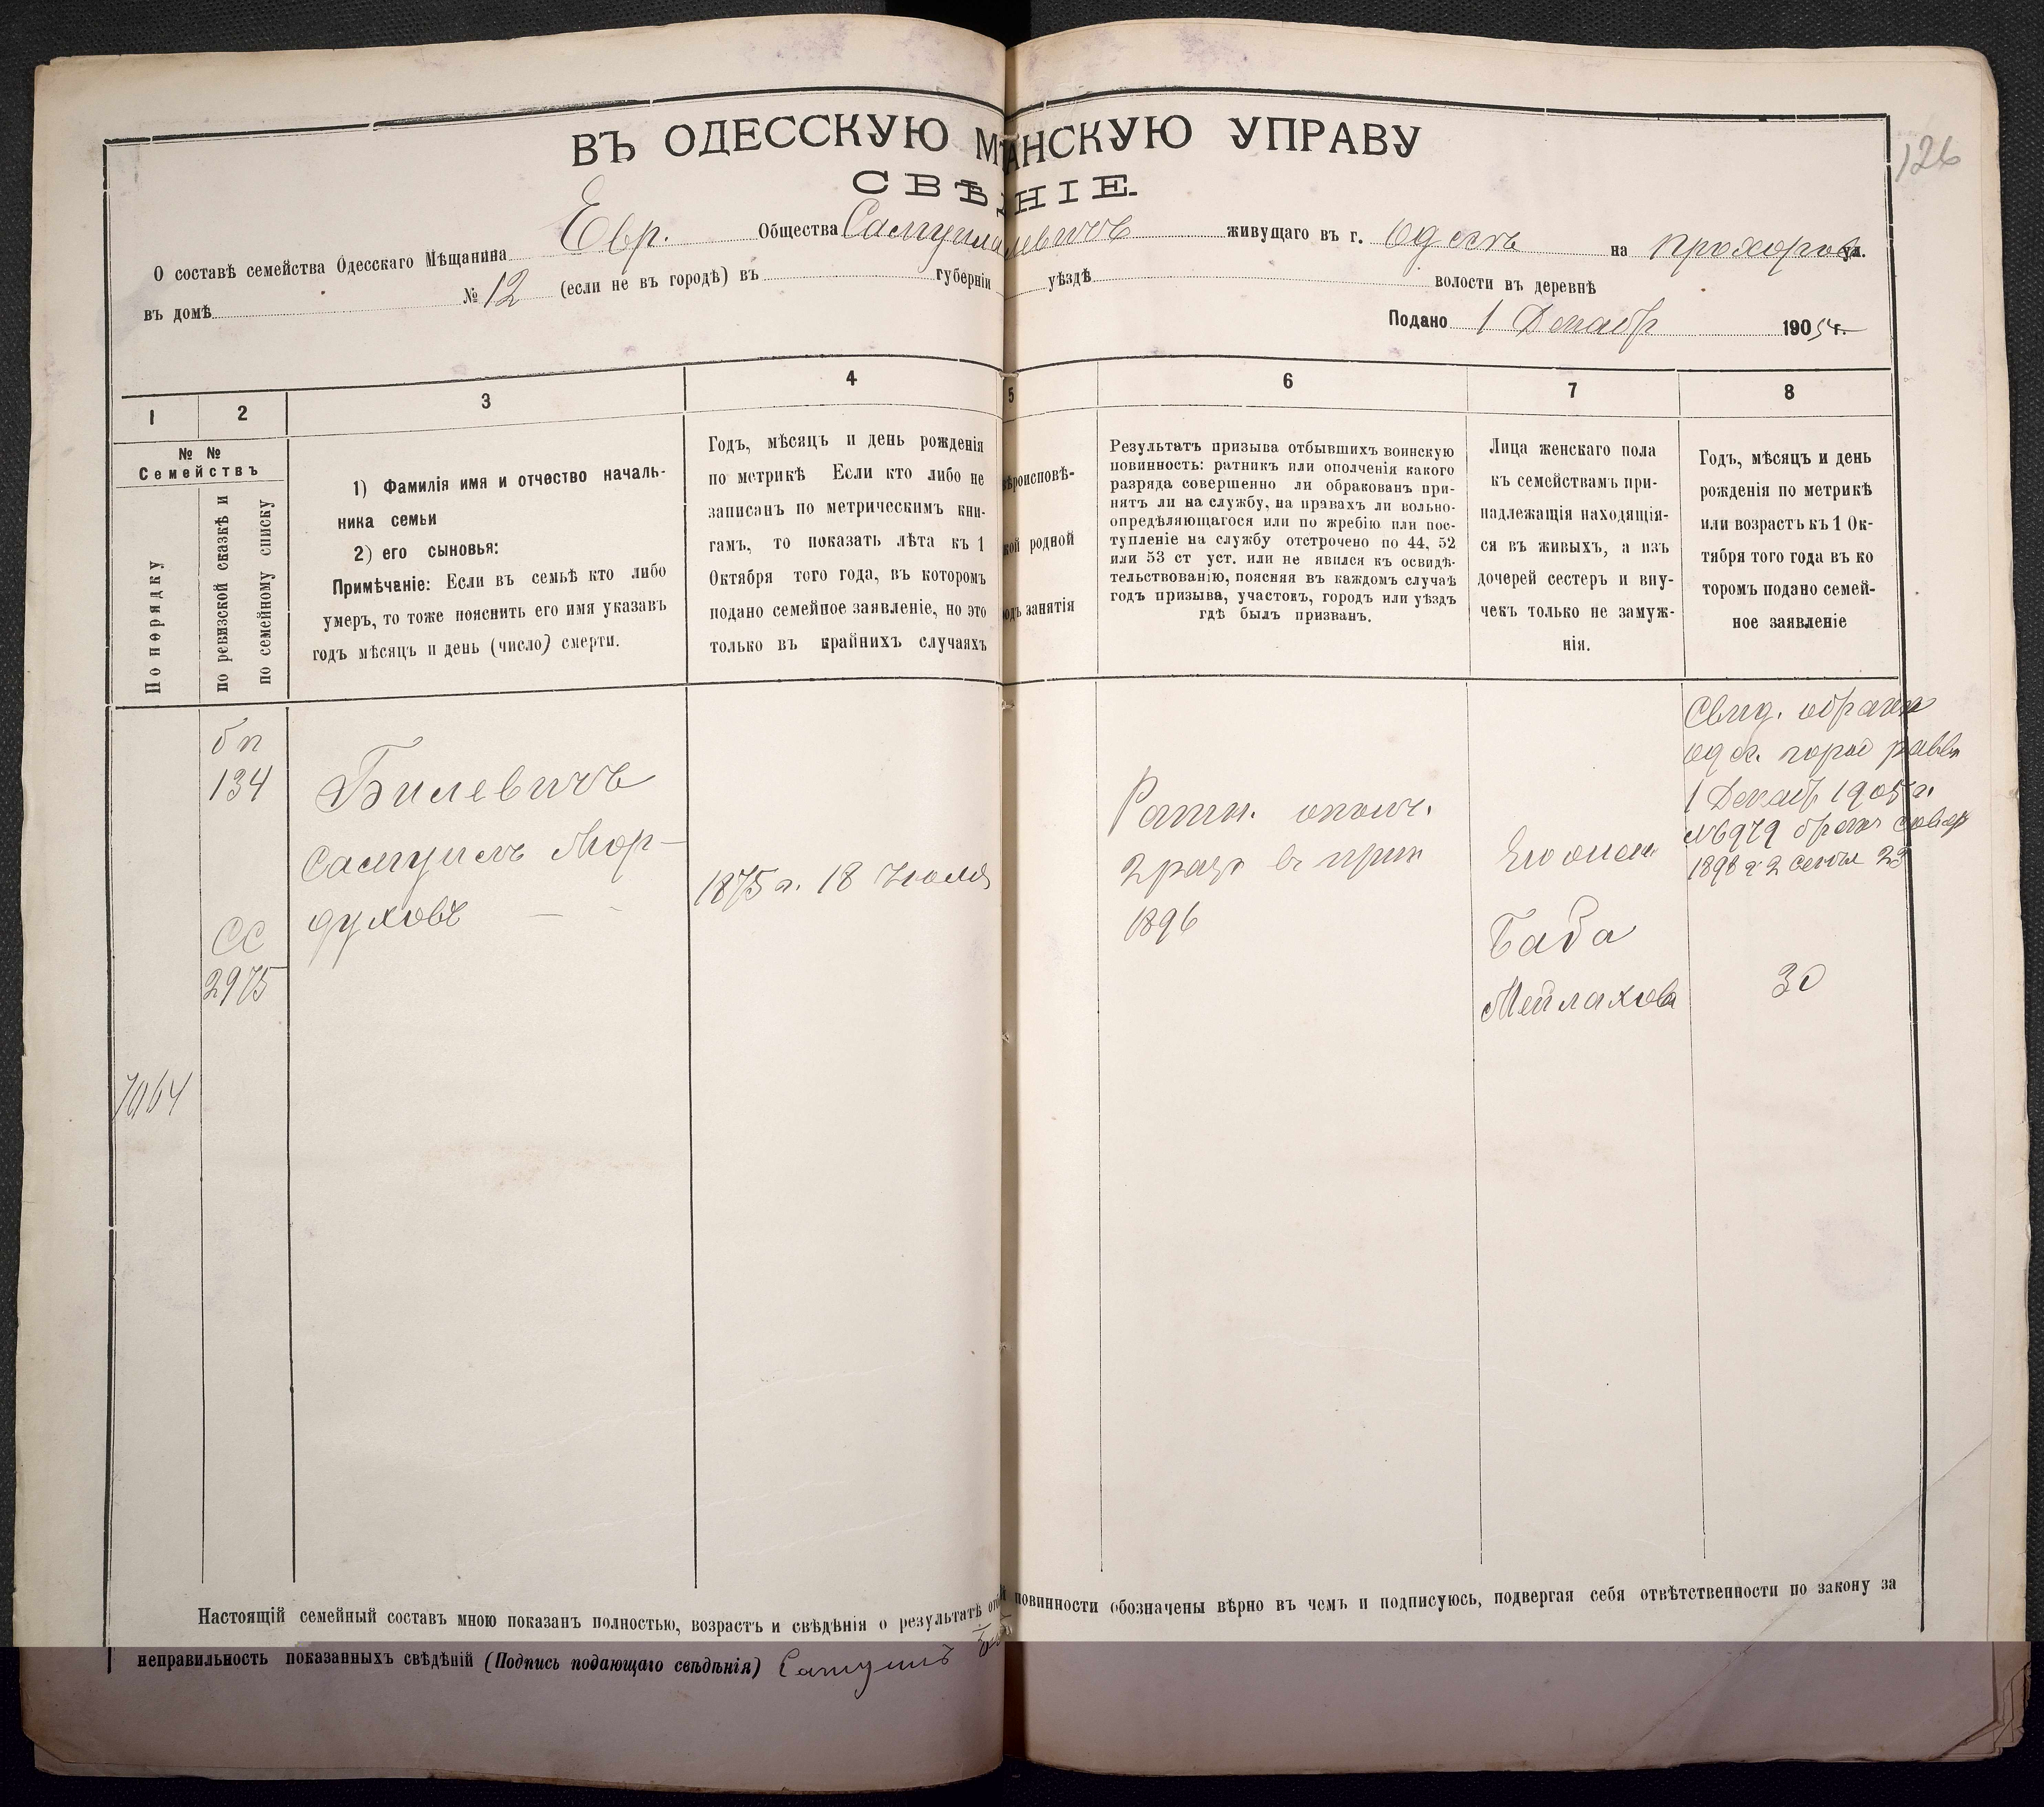 126
ВЪ ОДЕССКУЮ М АНСКУЮ УПРАВУ
СВѢ НІЕ.
О составѣ семейства Одесскаго Мѣщанина Евр. Общества живущаго въ г. Одессѣ на Прохоров ул.
въ домѣ № 12 (если не въ городѣ) въ губерніи уѣздѣ волости въ деревнѣ
Подано 1 Декабр 1905 г.
1 2 3 4 5 6 7 8
№ №
Семействъ
По порядку
по ревизской сказкѣ и
по семейному списку
1) Фамилія имя и отчество началь-
ника семьи
2) его сыновья:
Примѣчаніе: Если въ семьѣ кто либо
умеръ, то тоже пояснить его имя указавъ
годъ мѣсяцъ и день (число) смерти.
Годъ, мѣсяцъ и день рожденія
по метрикѣ Если кто либо не
записанъ по метрическимъ кни-
гамъ, то показать лѣта къ 1
Октября того года, въ которомъ
подано семейное заявленіе, но это
только въ крайнихъ случаяхъ
ѣроисповѣ-
кой родной
одъ занятія
Результатъ призыва отбывшихъ воинскую
повинность: ратникъ или ополченія какого
разряда совершенно ли обракованъ при-
нятъ ли на службу, на правахъ ли вольно-
опредѣляющагося или по жребію или пос-
тупленіе на службу отстрочено по 44, 52
или 53 ст уст. или не явился къ освидѣ-
тельствованію, поясняя въ каждомъ случаѣ
годъ призыва, участокъ, городъ или уѣздъ
гдѣ былъ призванъ.
Лица женскаго пола
къ семействамъ при-
надлежащія находящія-
ся въ живыхъ, а изъ
дочерей сестеръ и вну-
чекъ только не замуж-
нія.
Годъ, мѣсяцъ и день
рожденія по метрикѣ
или возрастъ къ 1 Ок-
тября того года въ ко
торомъ подано семей-
ное заявленіе
бп
134
СС
2975
7064
Билевичъ
Самуилъ Мор-
духовъ
1875 г. 18 Іюля
Ратн. ополч.
2 разр въ приз
1896
Его жен
Баба
Мейлахова
Свид. о брак
од. гор раввин
1 Декаб 1905 г.
№ 6979 брак совер
1898 г 2 сентбя 23
30
Настоящій семейный составъ мною показанъ полностью, возрастъ и свѣдѣнія о результатѣ повинности обозначены вѣрно въ чемъ и подписуюсь, подвергая себя отвѣтственности по закону за
неправильность показанныхъ свѣдѣній (Подпись подающаго свѣдѣнія) Самуилъ